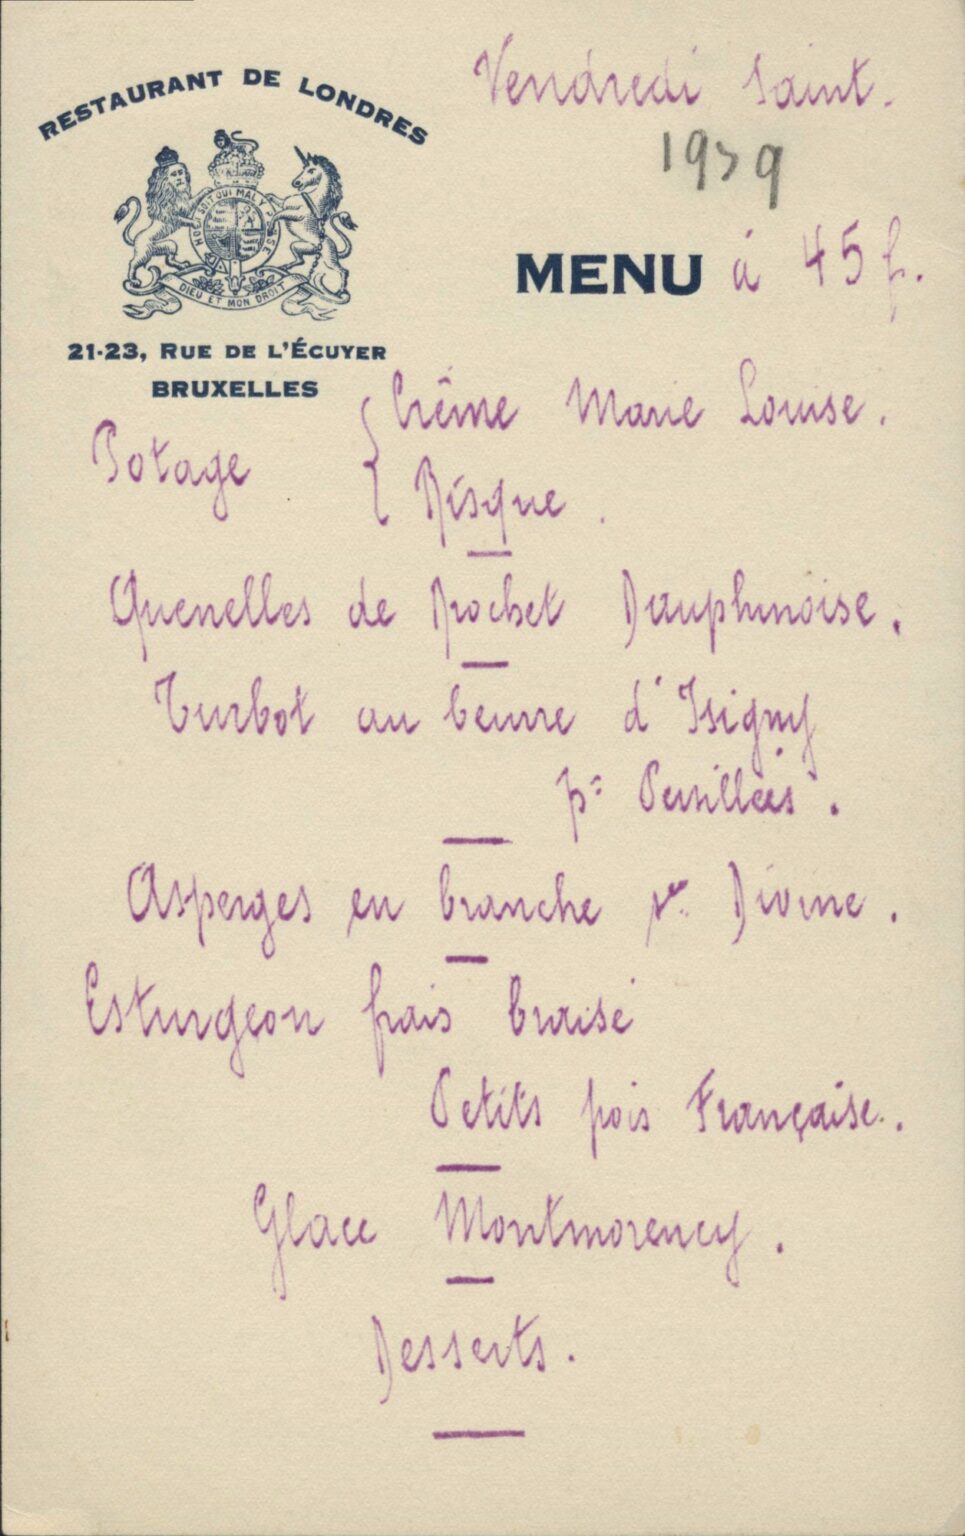 RESTAURANT DE LONDRES
HONI SOIT QUI MAL Y PENSE
DIEU ET MON DROIT
21-23, RUE DE L'ÉCUYER
BRUXELLES
Vendredi Saint.
1939
MENU à 45 f.
Potage { Crême Marie Louise.
Bisque.
Quenelles de Brochet Dauphinoise.
Turbot au beurre d'Isigny
p: Persillées.
Asperges en branche Divine.
Esturgeon frais braisé
Petits pois Française.
Glace Montmorency.
Desserts.